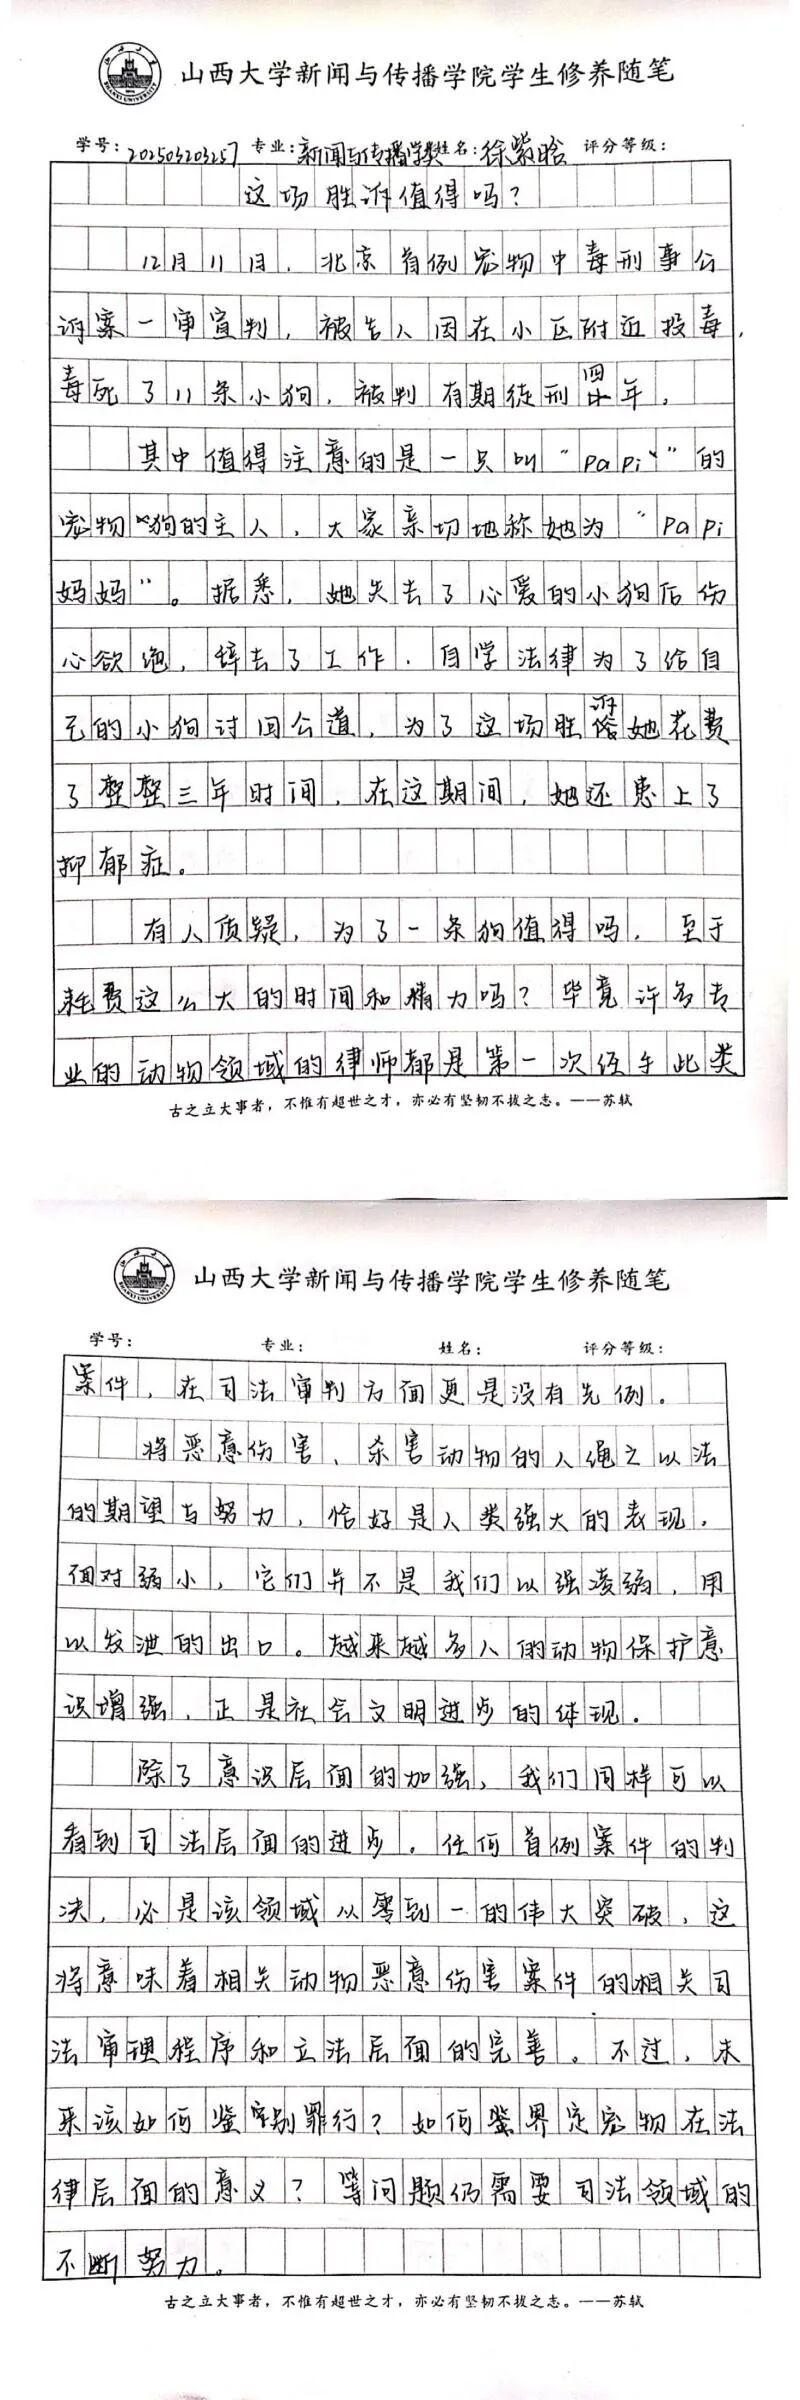 山西大学新闻与传播学院学生修养随笔
学号: 202503203257 专业: 新闻与传播学类 姓名: 徐紫晗 评分等级:
这场胜诉值得吗?
12月11日,北京首例宠物中毒刑事公
诉案一审宣判,被告人因在小区附近投毒,
毒死了11条小狗,被判有期徒刑四年。
其中值得注意的是一只叫“papi”的
宠物狗的主人,大家亲切地称她为“papi
妈妈”。据悉,她失去了心爱的小狗后伤
心欲绝,辞去了工作,自学法律为了给自
己的小狗讨回公道,为了这场胜诉她花费
了整整三年时间,在这期间,她还患上了
抑郁症。
有人质疑,为了一条狗值得吗,至于
耗费这么大的时间和精力吗?毕竟许多专
业的动物领域的律师都是第一次经手此类
古之立大事者,不惟有超世之才,亦必有坚韧不拔之志。——苏轼
山西大学新闻与传播学院学生修养随笔
学号: 专业: 姓名: 评分等级:
案件,在司法审判方面更是没有先例。
将恶意伤害、杀害动物的人绳之以法
的期望与努力,恰好是人类强大的表现。
面对弱小,它们并不是我们以强凌弱,用
以发泄的出口。越来越多人的动物保护意
识增强,正是社会文明进步的体现。
除了意识层面的加强,我们同样可以
看到司法层面的进步。任何首例案件的判
决,必是该领域从零到一的伟大突破,这
将意味着相关动物恶意伤害案件的相关司
法审理程序和立法层面的完善。不过,未
来该如何鉴别罪行?如何界定宠物在法
律层面的意义?等问题仍需要司法领域的
不断努力。
古之立大事者,不惟有超世之才,亦必有坚韧不拔之志。——苏轼